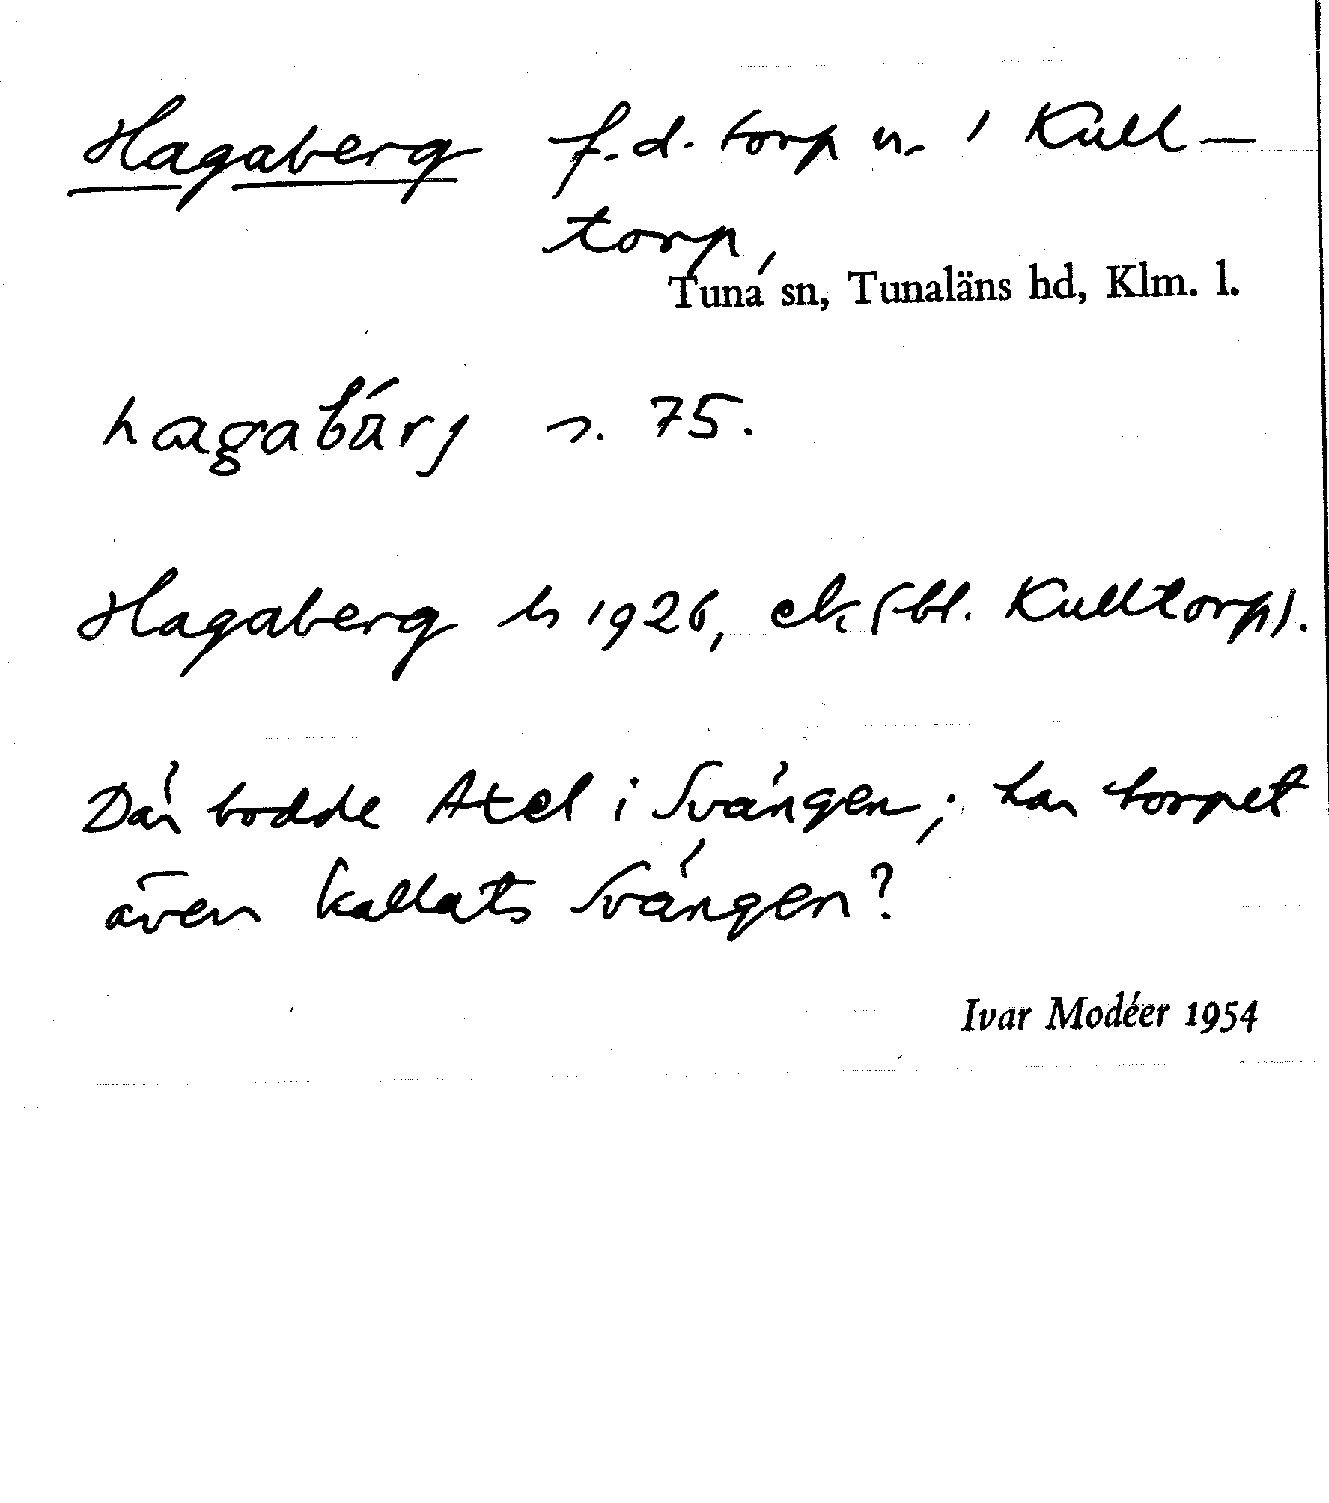 Hagaberg f.d. torp u. 1 Kull-
torp,
Tuna sn, Tunaläns hd, Klm. l.
hagabärj s. 75.
Hagaberg h 1926, ek (bl. Kulltorp).
Där bodde Axel i Svängen; har torpet
även kallats Svängen?
Ivar Modéer 1954